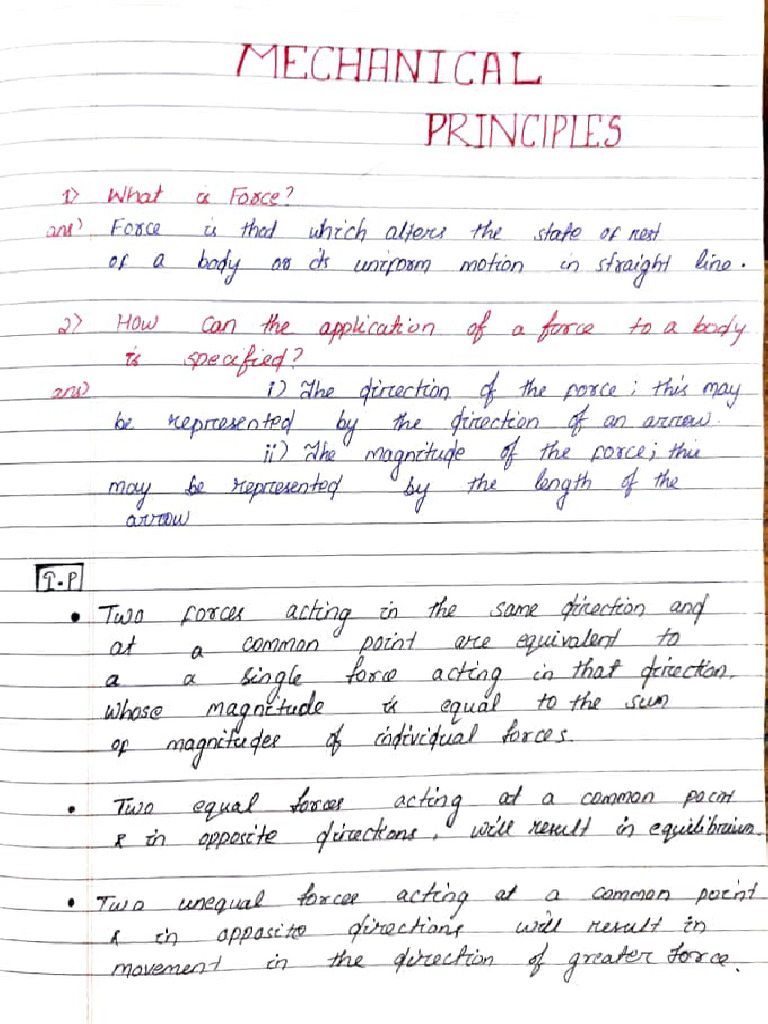 MECHANICAL
PRINCIPLES
1) What is Force?
ans) Force is that which alters the state of rest
of a body or its uniform motion in straight line.
2) How can the application of a force to a body
is specified?
ans) i) The direction of the force; this may
be represented by the direction of an arrow.
ii) The magnitude of the force; this
may be represented by the length of the
arrow
I.P
• Two forces acting in the same direction and
at a common point are equivalent to
a a single force acting in that direction,
whose magnitude is equal to the sum
of magnitudes of individual forces.
• Two equal forces acting at a common point
& in opposite directions, will result in equilibrium.
• Two unequal forces acting at a common point
& in opposite directions will result in
movement in the direction of greater force.